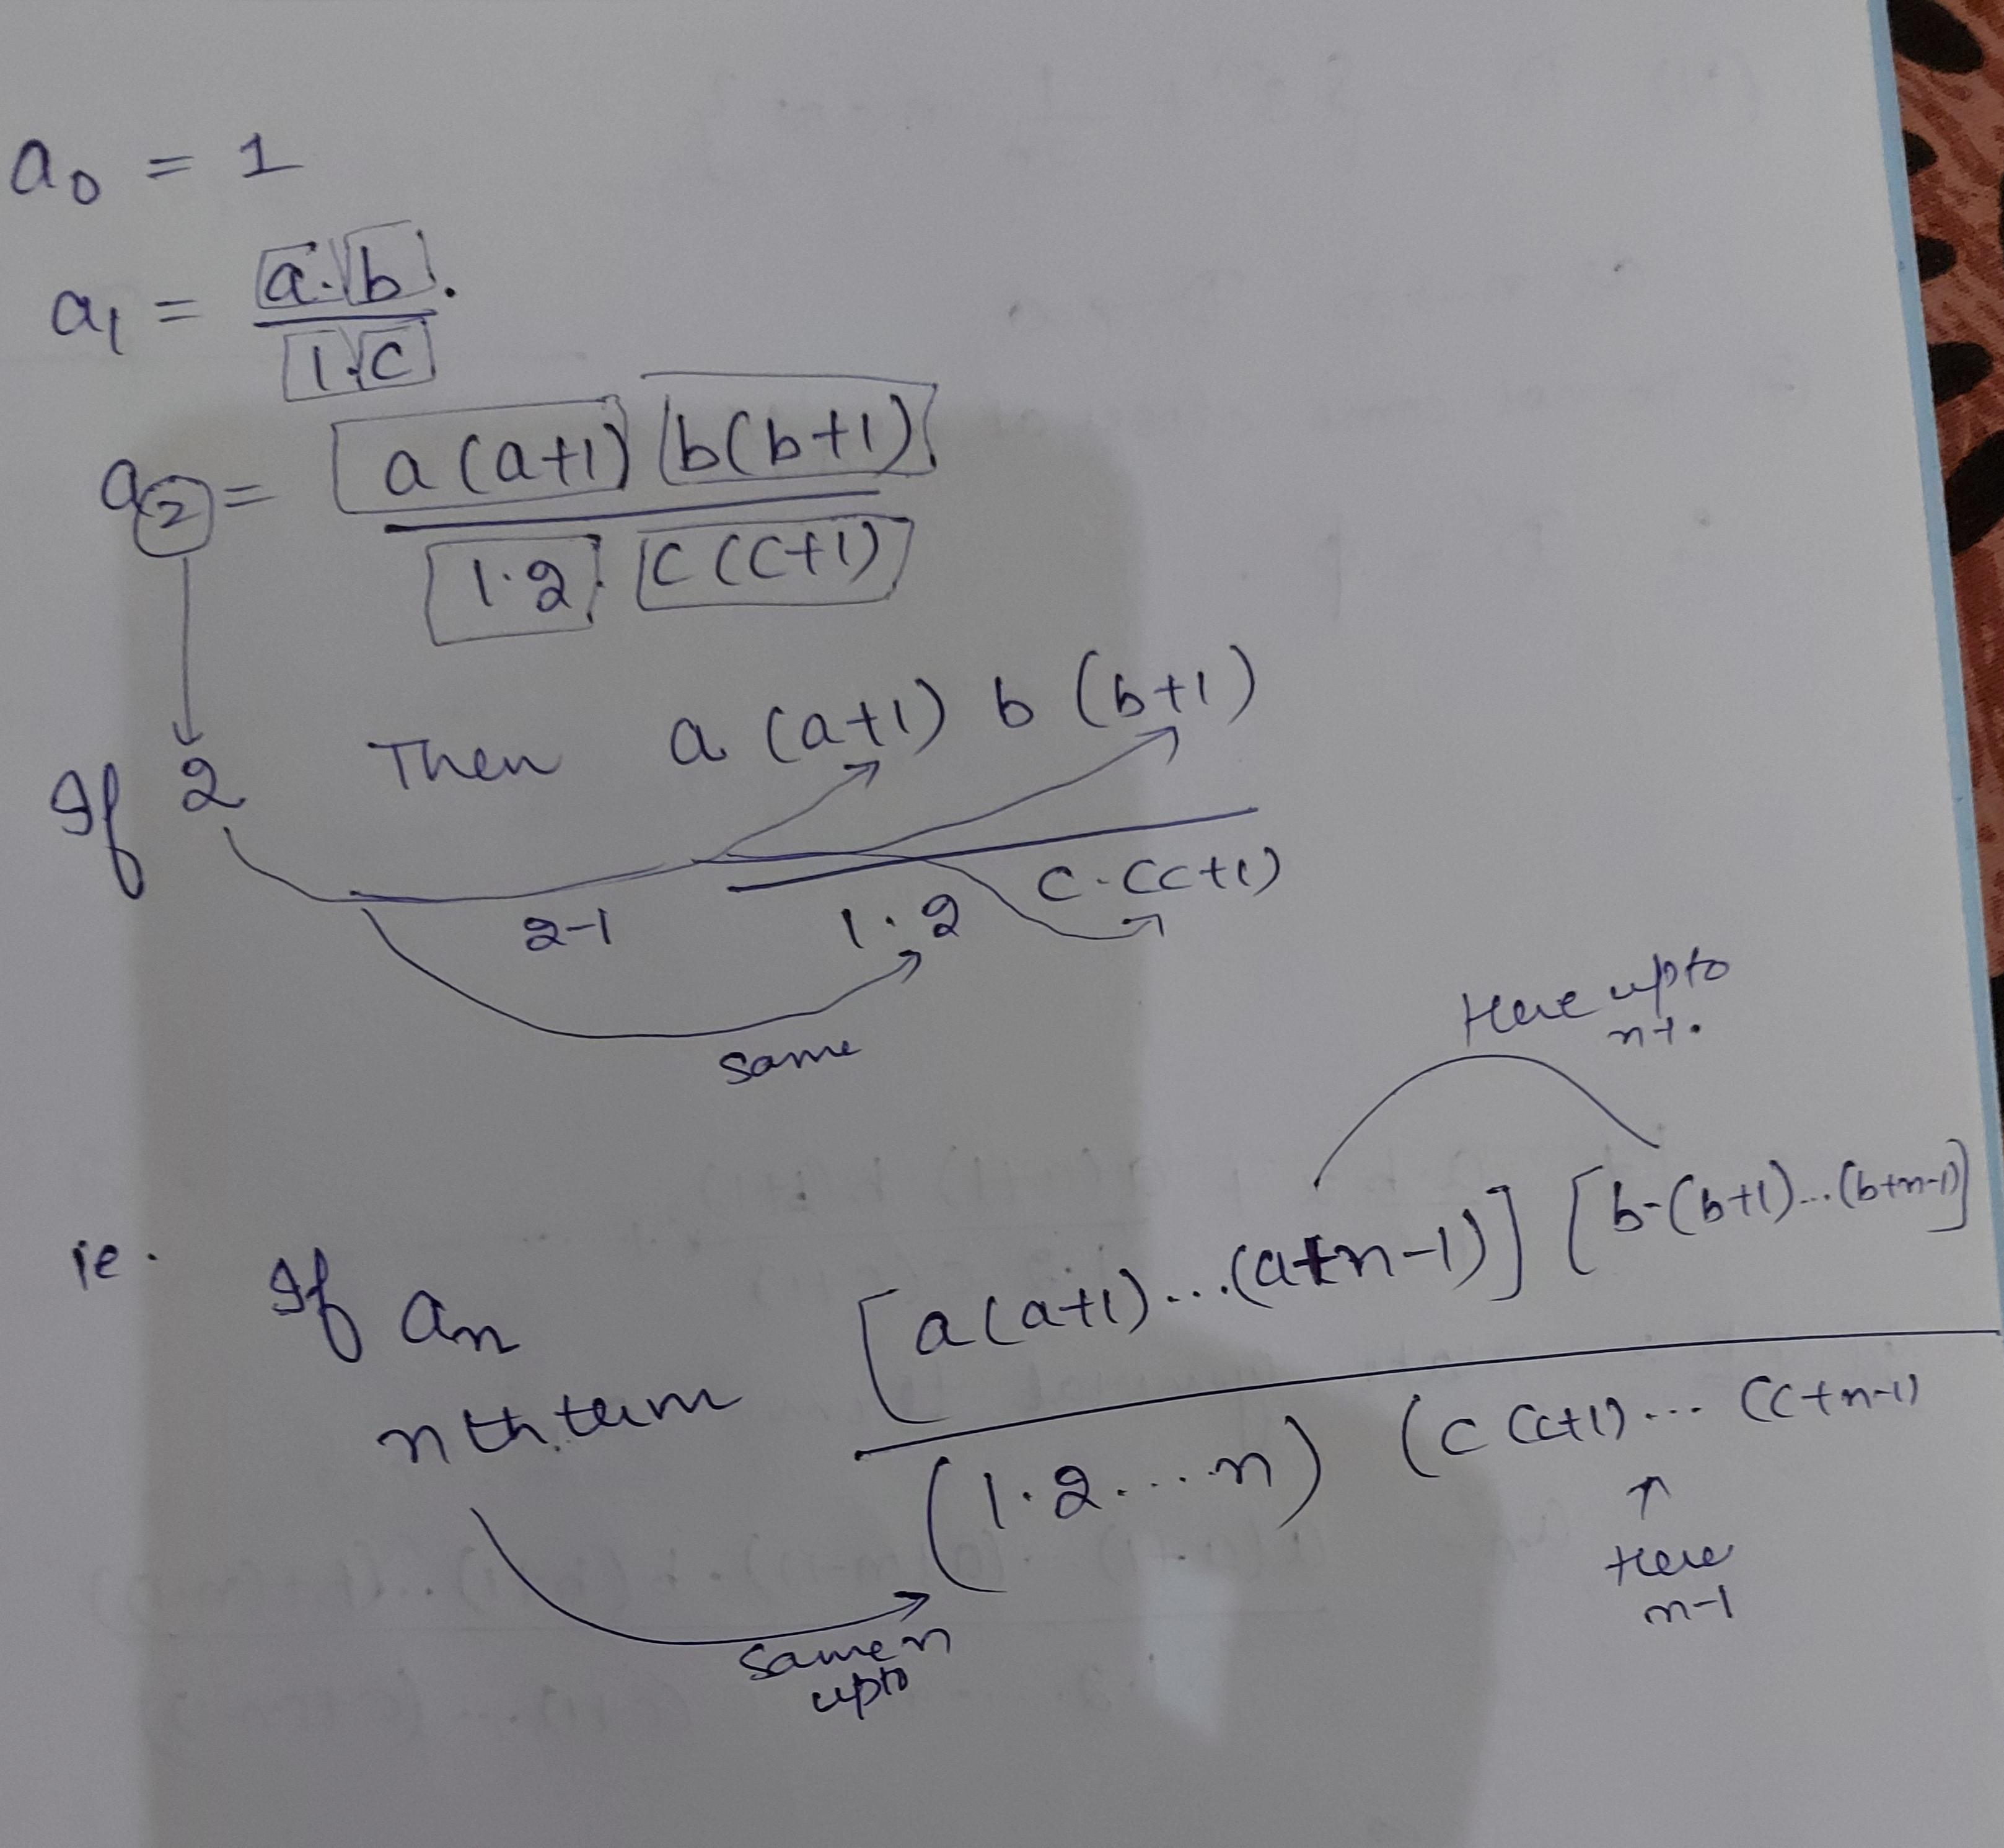 a₀ = 1
a₁ = a.b / 1.c
a₂ = a(a+1) b(b+1) / 1.2 . c(c+1)
If 2 Then a (a+1) b (b+1) / 1.2 c.(c+1)
2-1
same
Here upto
ie. If aₙ [a(a+1)...(a+n-1)] [b.(b+1)...(b+n-1)] / (1.2....n) (c (c+1)... (c+n-1)
nth term
Here
n-1
same n
upto